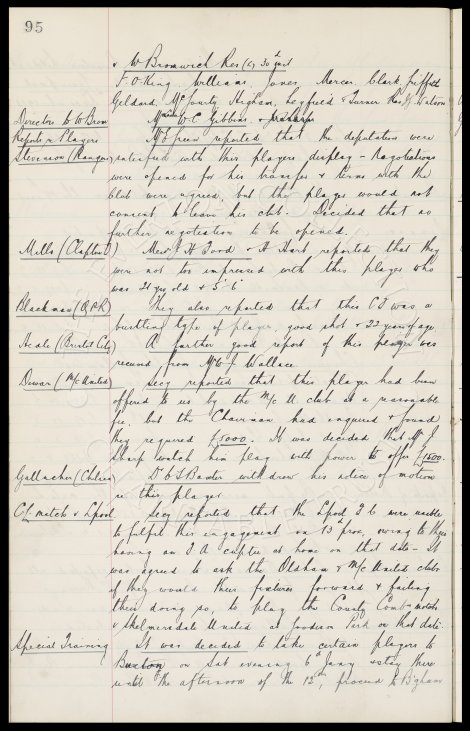 95
v W Bromwich Res (a) 30th inst
F. O. King, Williams, Jones, Mercer, Clark, Griffiths
Geldard, McGourty, Higham, Leyfield & Turner Res R Watson
Directors to W Brom Messrs W.C. Gibbins &
Reports re Players Mr Green reported that the deputation were
Stevenson (Rangers) satisfied with this players display - Negotiations
were opened for his transfer & terms with the
Club were agreed, but the player would not
consent to leave his club. Decided that no
further negotiation to be opened.
Mills (Clapton O) Messrs J H Goord & A Hart reported that they
were not too impressed with this player who
was 21 yrs old & 5' 6"
Blackman (Q.P.R) They also reported that this C.F. was a
bustling type of player, good shot & 22 years of age
Neale (Bristol City) A further good report of this player was
received from Mr W J Wallace
Dewar (M/c United) Secy reported that this player had been
offered to us by the M/c U. club at a reasonable
fee, but the Chairman had enquired & found
they required £5000. It was decided that Mr J
Sharp watch him play with power to offer £1500.
Gallacher (Chelsea) Dr C S Baxter withdrew his notice of motion
re this player
C.L. match v L'pool Secy reported that the L'pool F C were unable
to fulfil this engagement on 13th prox, owing to their
having an F A cuptie at home on that date - It
was agreed to ask the Oldham & M/c United clubs
if they would their fixtures forward & failing
their doing so, to play the County Comb matches
v Skelmersdale United at Goodison Park on that date.
Special Training It was decided to take certain players to
Buxton on Sat evening 6th Jany & stay there
until the afternoon of the 12th, proceed to B'gham